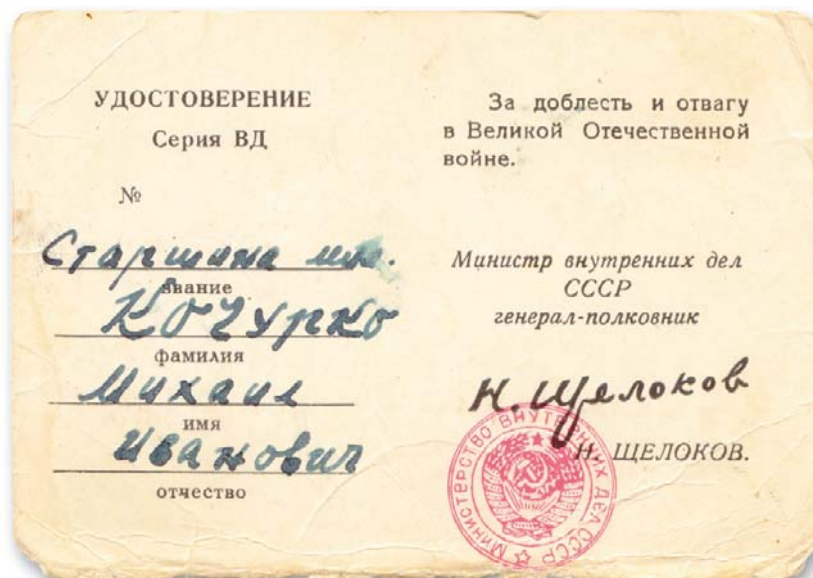 УДОСТОВЕРЕНИЕ
Серия ВД
№
Старшина мил.
звание
Кочурко
фамилия
Михаил
имя
Иванович
отчество
За доблесть и отвагу
в Великой Отечественной
войне.
Министр внутренних дел
СССР
генерал-полковник
Н. Щелоков
Н. ЩЕЛОКОВ.
МИНИСТЕРСТВО ВНУТРЕННИХ ДЕЛ СССР